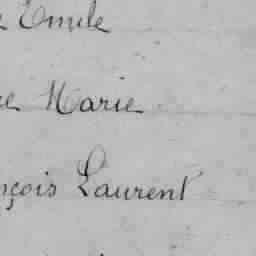 Emile
Marie
nçois Laurent